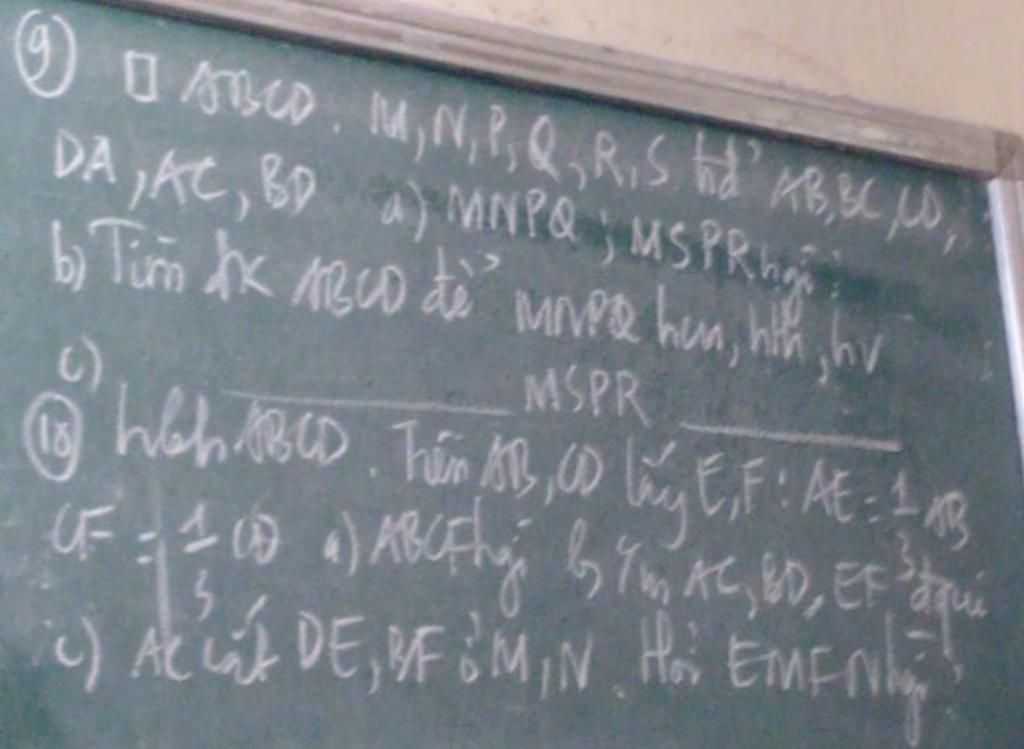 ⑨ □ ABCD. M, N, P, Q, R, S tđ AB, BC, CD,
DA, AC, BD a) MNPQ; MSPR hgì?
b) Tìm đk ABCD để MNPQ hcn, hth, hv
c) ——— MSPR ———
⑩ hbh ABCD. Trên AB, CD lấy E, F: AE = 1/3 AB
CF = 1/3 CD a) hgì b) AC, BD, EF đqui
c) AC cắt DE, BF ở M, N. Hỏi EMFN hgì?